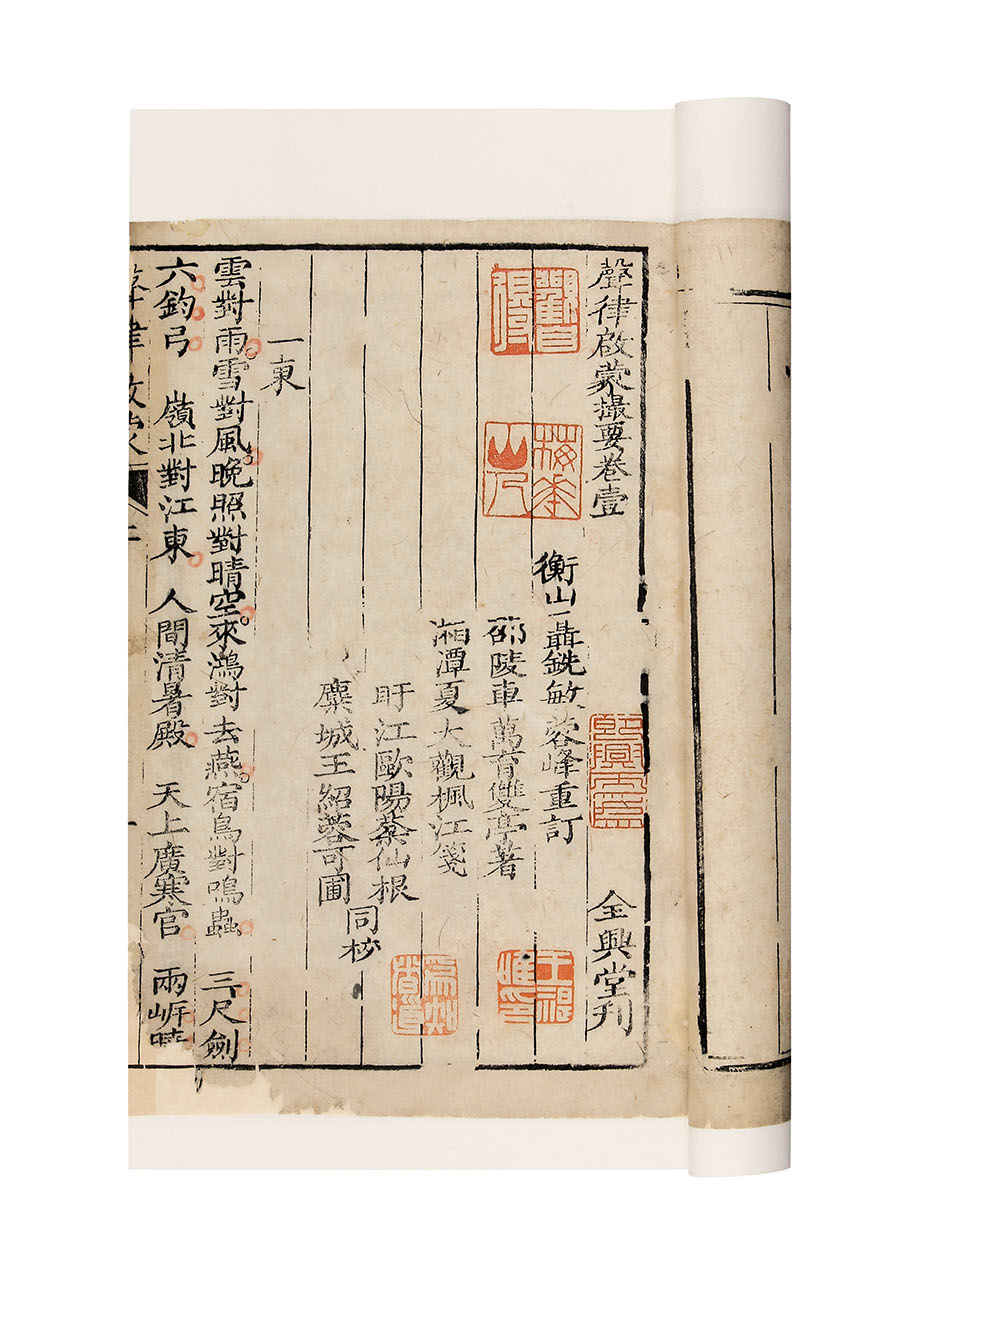 聲律啟蒙撮要卷壹
全興堂刋
衡山聶銑敏蓉峰重訂
邵陵車萬育雙亭著
湘潭夏大觀楓江箋
盱江歐陽棻仙根
麋城王紹蓉可圃
同校
一東
雲對雨雪對風晚照對晴空來鴻對去燕宿鳥對鳴蟲 三尺劍
六鈞弓 嶺北對江東 人間清暑殿 天上廣寒宫 兩岍曉